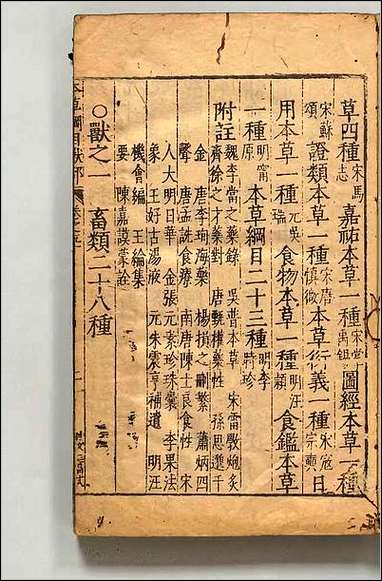 草四種宋馬志 嘉祐本草一種宋掌禹錫 圖經本草一種
宋蘇頌 證類本草一種宋唐慎微 本草衍義一種宋寇宗奭 日
用本草一種元吳瑞 食物本草一種明汪穎 食鑑本草
一種明甯原 本草綱目二十三種明李時珍
附註魏李當之藥錄 吳普本草 宋雷斆炮炙
齊徐之才藥對 唐甄權藥性 孫思邈千
金 唐李珣海藥 楊損之刪繁 蕭炳四
聲 唐孟詵食療 南唐陳士良食性 宋
人大明日華 金張元素珍珠囊 李果法
象 王好古湯液 元朱震亨補遺 明汪
機會編 王綸集
要 陳嘉謨蒙詮
○獸之一 畜類二十八種
本草綱目獸部